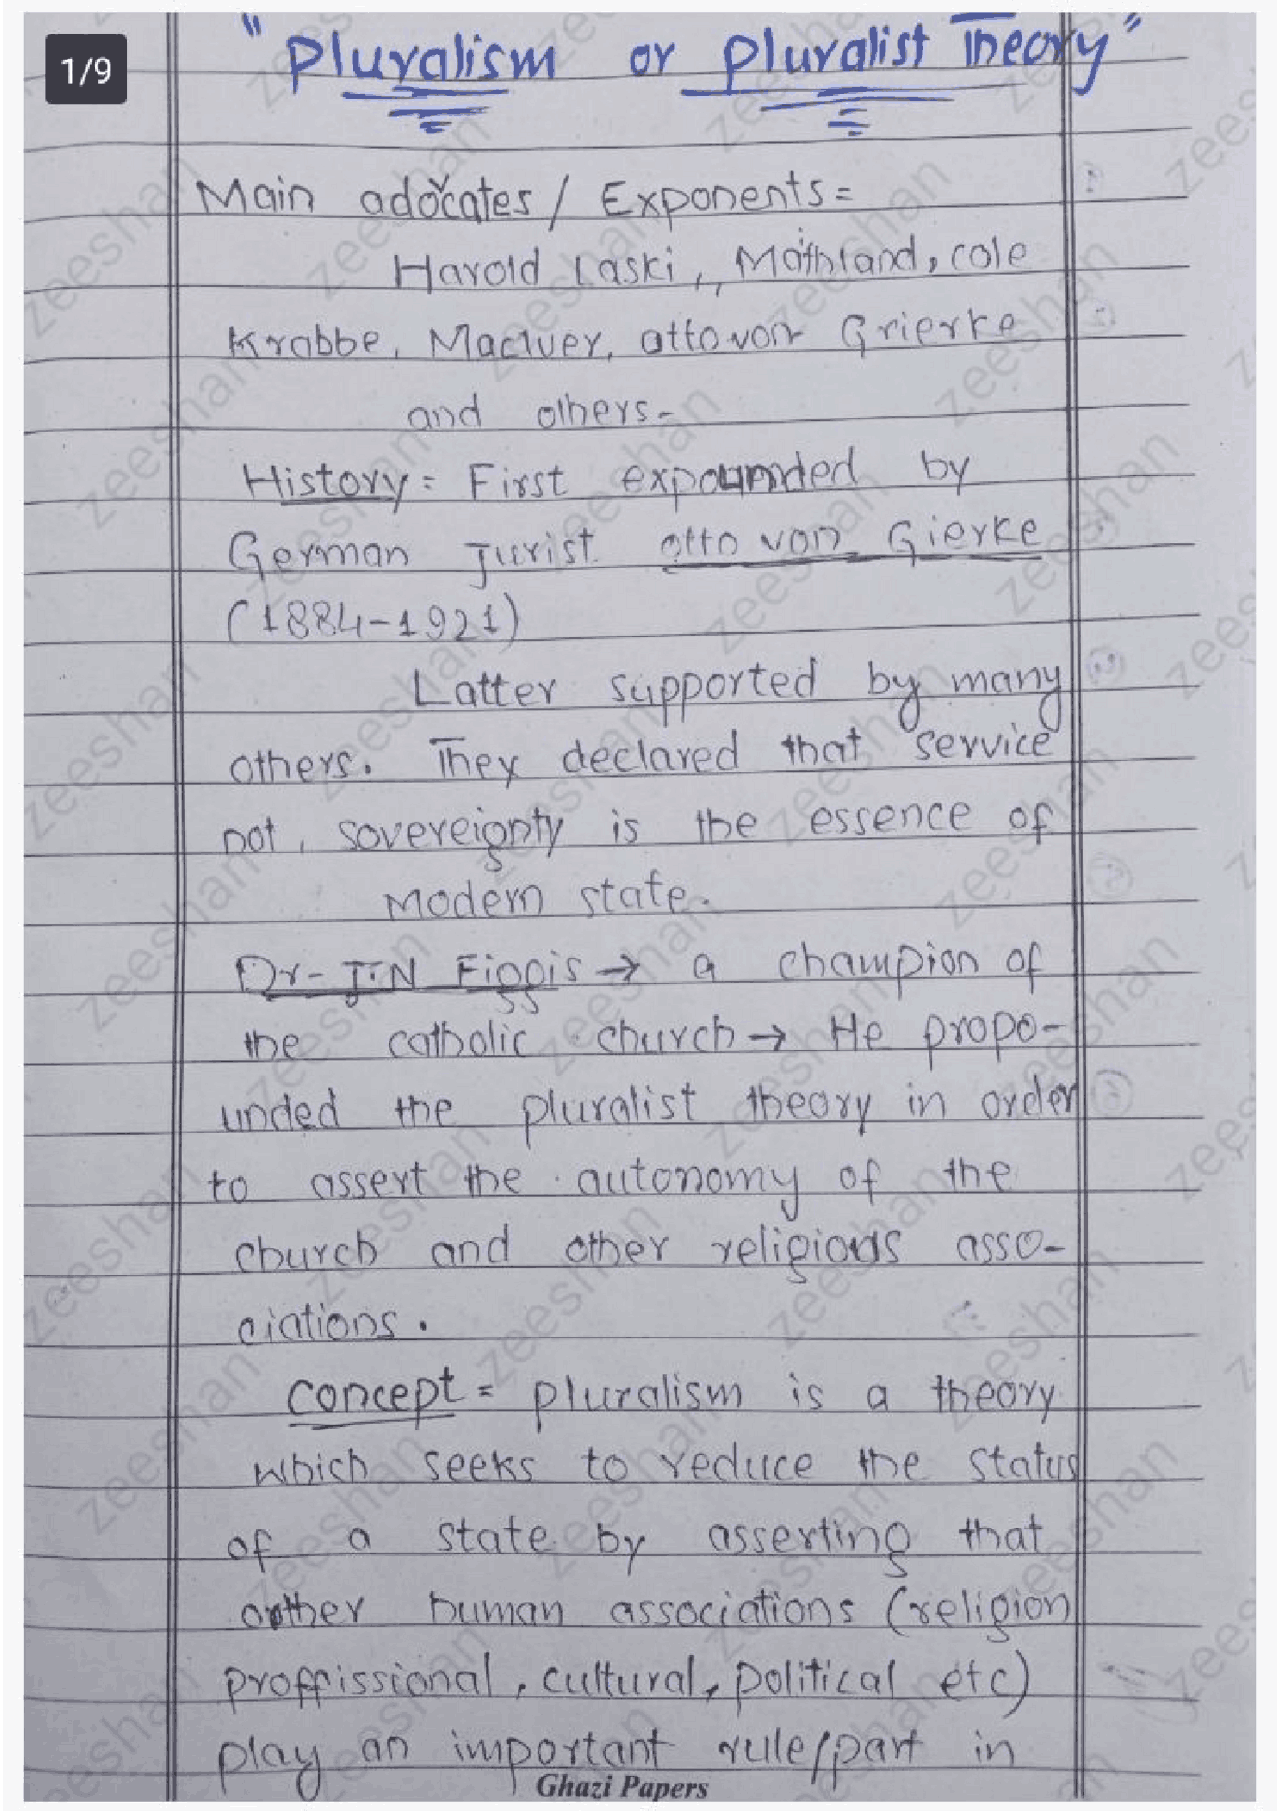 1/9
"Pluralism or Pluralist Theory"
Main adocates / Exponents =
v
Harold Laski ,, Maithland, cole
Krabbe, MacIver, otto von Grierke
and others-
History = First expounded by
German Jurist otto von Gierke
(1884-1921)
Latter supported by many
others. They declared that service
not, sovereignty is the essence of
Modern state.
Dr-J.N Figgis → a champion of
the catholic church → He propo-
unded the pluralist theory in order
to assert the autonomy of the
church and other religious asso-
ciations.
concept = pluralism is a theory
which seeks to reduce the status
of a state by asserting that
other human associations (religion
proffissional, cultural, political etc)
play an important rule/part in
Ghazi Papers
zeeshan